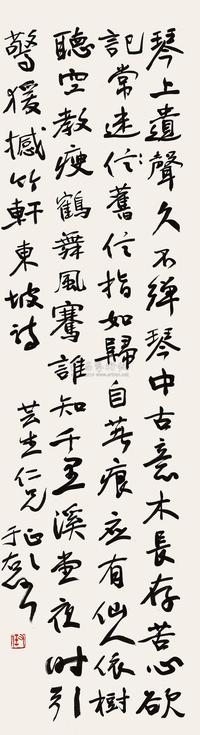 琴上遺聲久不彈琴中古意本長存苦心欲
記常迷信舊信指如歸自著痕應有仙人依樹
聽空教瘦鶴舞風騫誰知千里溪堂夜時引
驚猨撼竹軒東坡詩
芸生仁兄正之
于右任